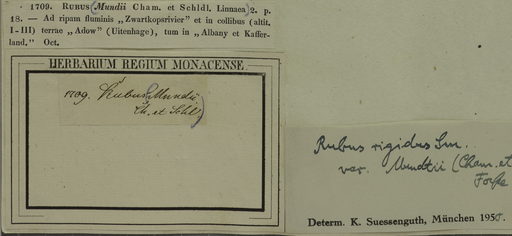 · 1709. RUBUS (Mundii Cham. et Schldl. Linnaea) 2. p.
18. — Ad ripam fluminis „Zwartkopsrivier” et in collibus (altit.
I-III) terrae „Adow” (Uitenhage), tum in „Albany et Kaffer-
land.” Oct.
HERBARIUM REGIUM MONACENSE.
1709. Rubus Mundii
Ch. et Schl.)
Rubus rigidus Sm.
var. Mundtii (Cham. et
Focke
Determ. K. Suessenguth, München 1950.